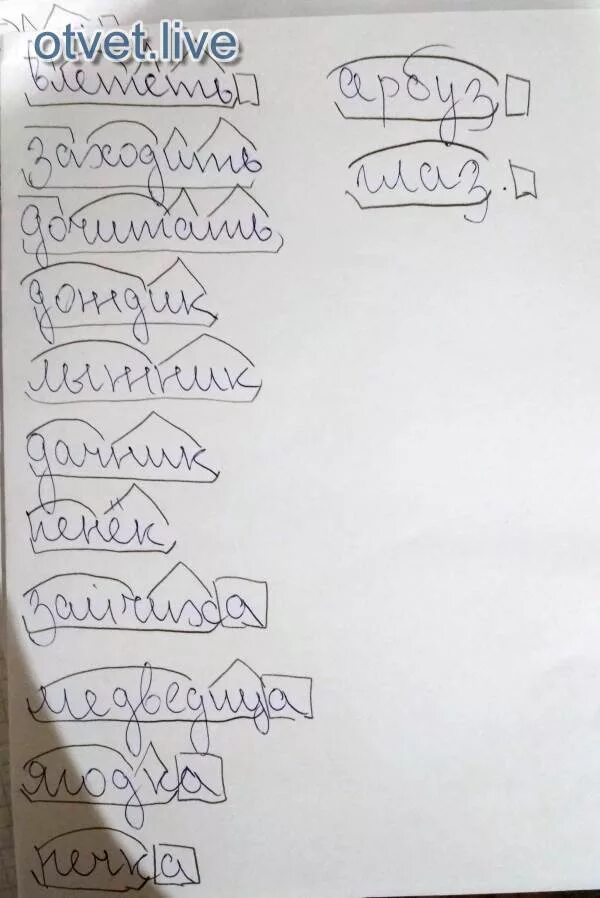 otvet.live
влететь
заходить
дочитать
дождик
лыжник
дачник
пенёк
зайчиха
медведица
ягодка
печка
арбуз
глаз.